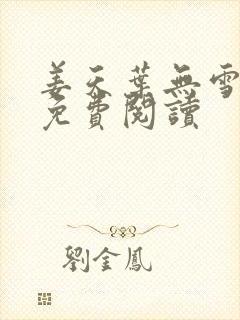 姜天葉無雪
免費閱讀
劉金鳳